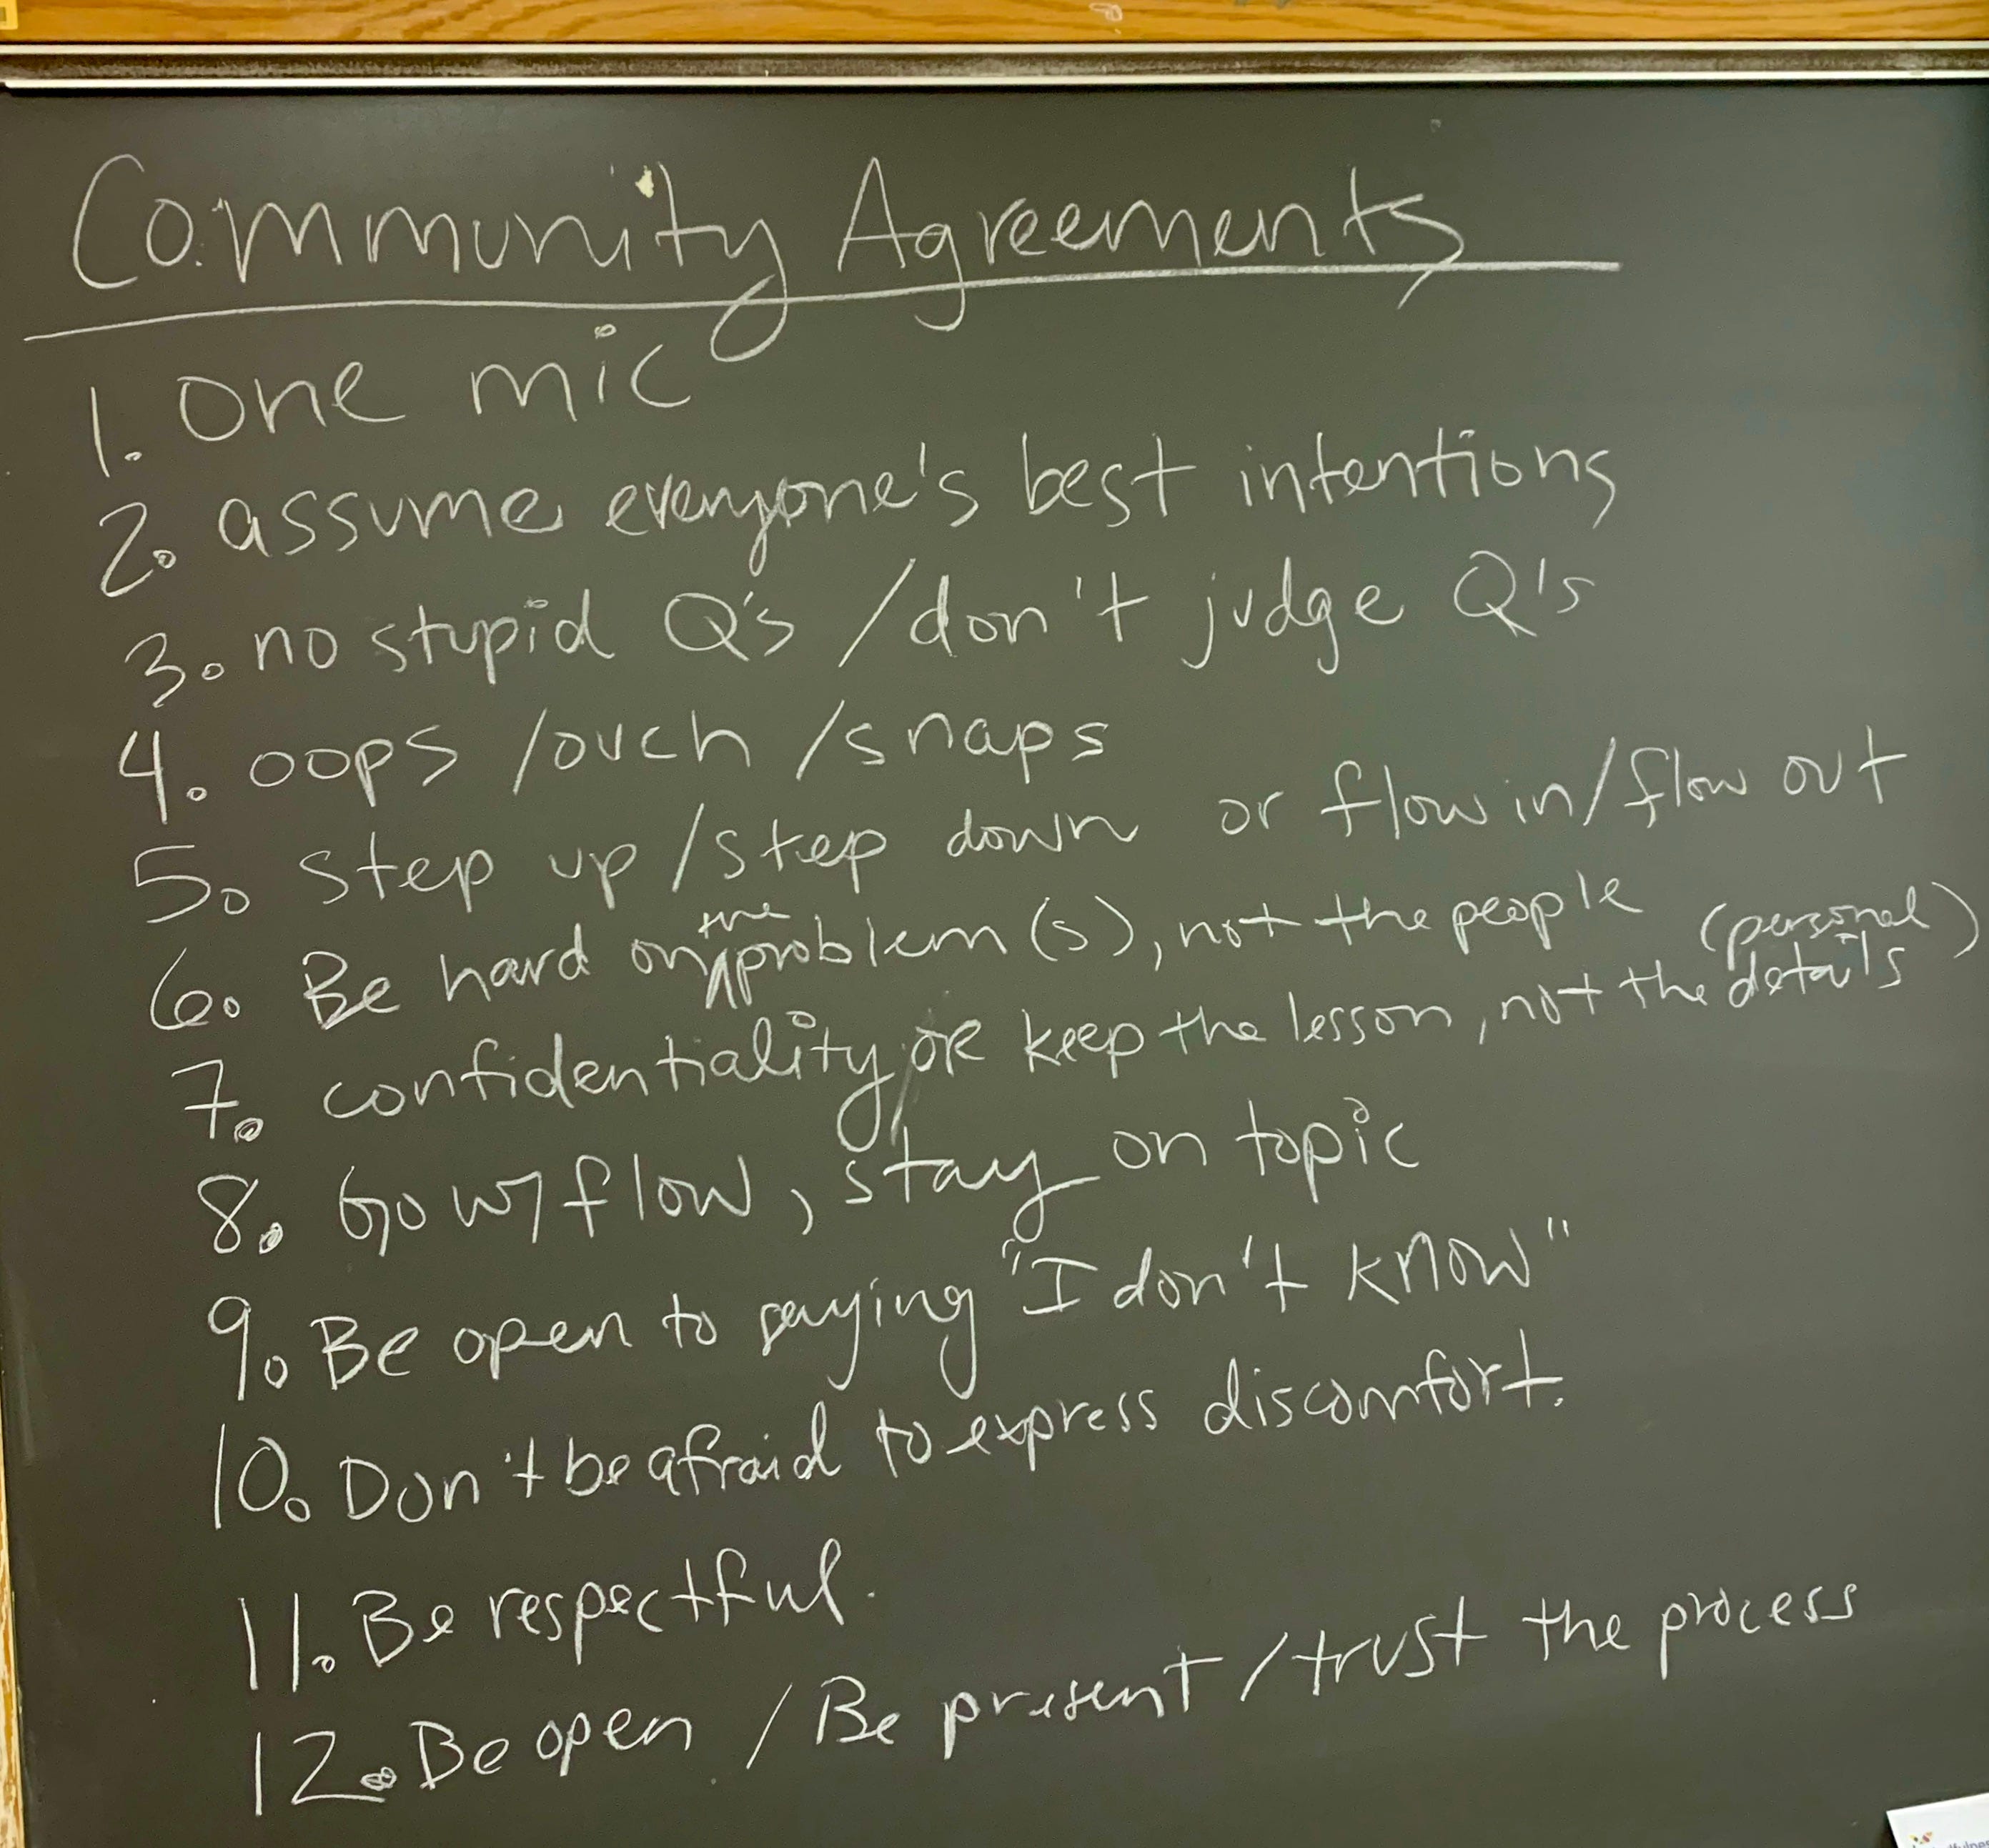 Community Agreements
1. One mic
2. assume everyone's best intentions
3. no stupid Q's / don't judge Q's
4. oops / ouch / snaps
5. step up / step down or flow in / flow out
6. Be hard on the problem(s), not the people
7. confidentiality OR keep the lesson, not the (personal) details
8. Go w/ flow, stay on topic
9. Be open to saying "I don't know"
10. Don't be afraid to express discomfort.
11. Be respectful.
12. Be open / Be present / trust the process